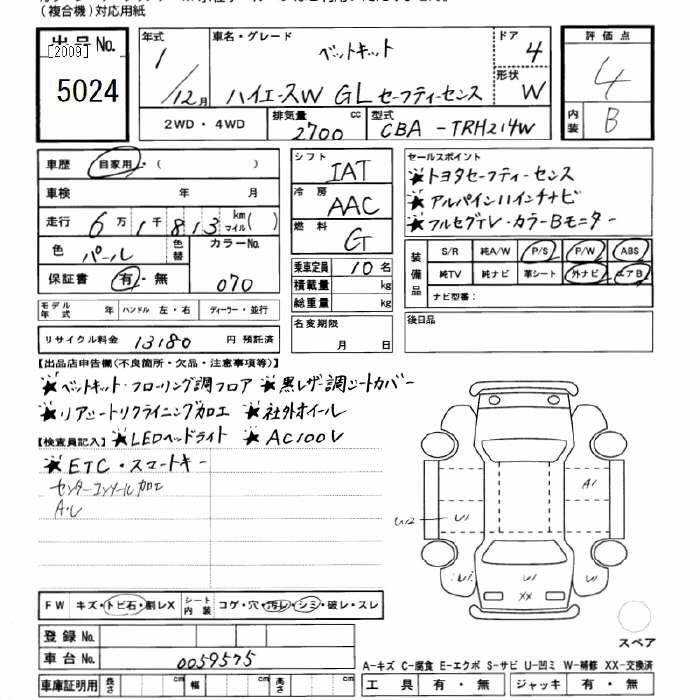 (複合機)対応用紙
出品No.
[2009]
5024
年式
1/12月
車名・グレード
ベットキット
ハイエースW GL セーフティーセンス
ドア
4
形状
W
評価点
4
内装
B
2WD・4WD
排気量
2700 cc
型式
CBA-TRH214W
車歴 自家用・( )
車検 年 月
走行 6万1千813 km マイル( )
色 パール 色替
カラーNo.
070
保証書 有・無
シフト IAT
冷房 AAC
燃料 G
乗車定員 10名
積載量 kg
総重量 kg
セールスポイント
★トヨタセーフティーセンス
★アルパイン11インチナビ
★フルセグTV・カラーBモニター
装備品
S/R 純A/W P/S P/W ABS
純TV 純ナビ 革シート 外ナビ エアB
ナビ型番:
モデル年式 年 ハンドル 左・右 ディーラー・並行
リサイクル料金 13180 円 預託済
名変期限
月 日
後日品
【出品店申告欄(不良箇所・欠品・注意事項等)】
★ベットキット・フローリング調フロア ★黒レザー調シートカバー
★リアシートリクライニング加工 ★社外ホイール
【検査員記入】 ★LEDヘッドライト ★AC100V
★ETC・スマートキー
センターコンソール加工
A・U
A1
U12
U1
U1
U1
U1
XX
FW キズ・トビ石・割レX
シート内装 コゲ・穴・汚レ・シミ・破レ・スレ
登録No.
車台No. 0059575
車庫証明用 長さ cm 幅 cm 高さ cm
スペア
A-キズ C-腐食 E-エクボ S-サビ U-凹ミ W-補修 XX-交換済
工具 有・無 ジャッキ 有・無